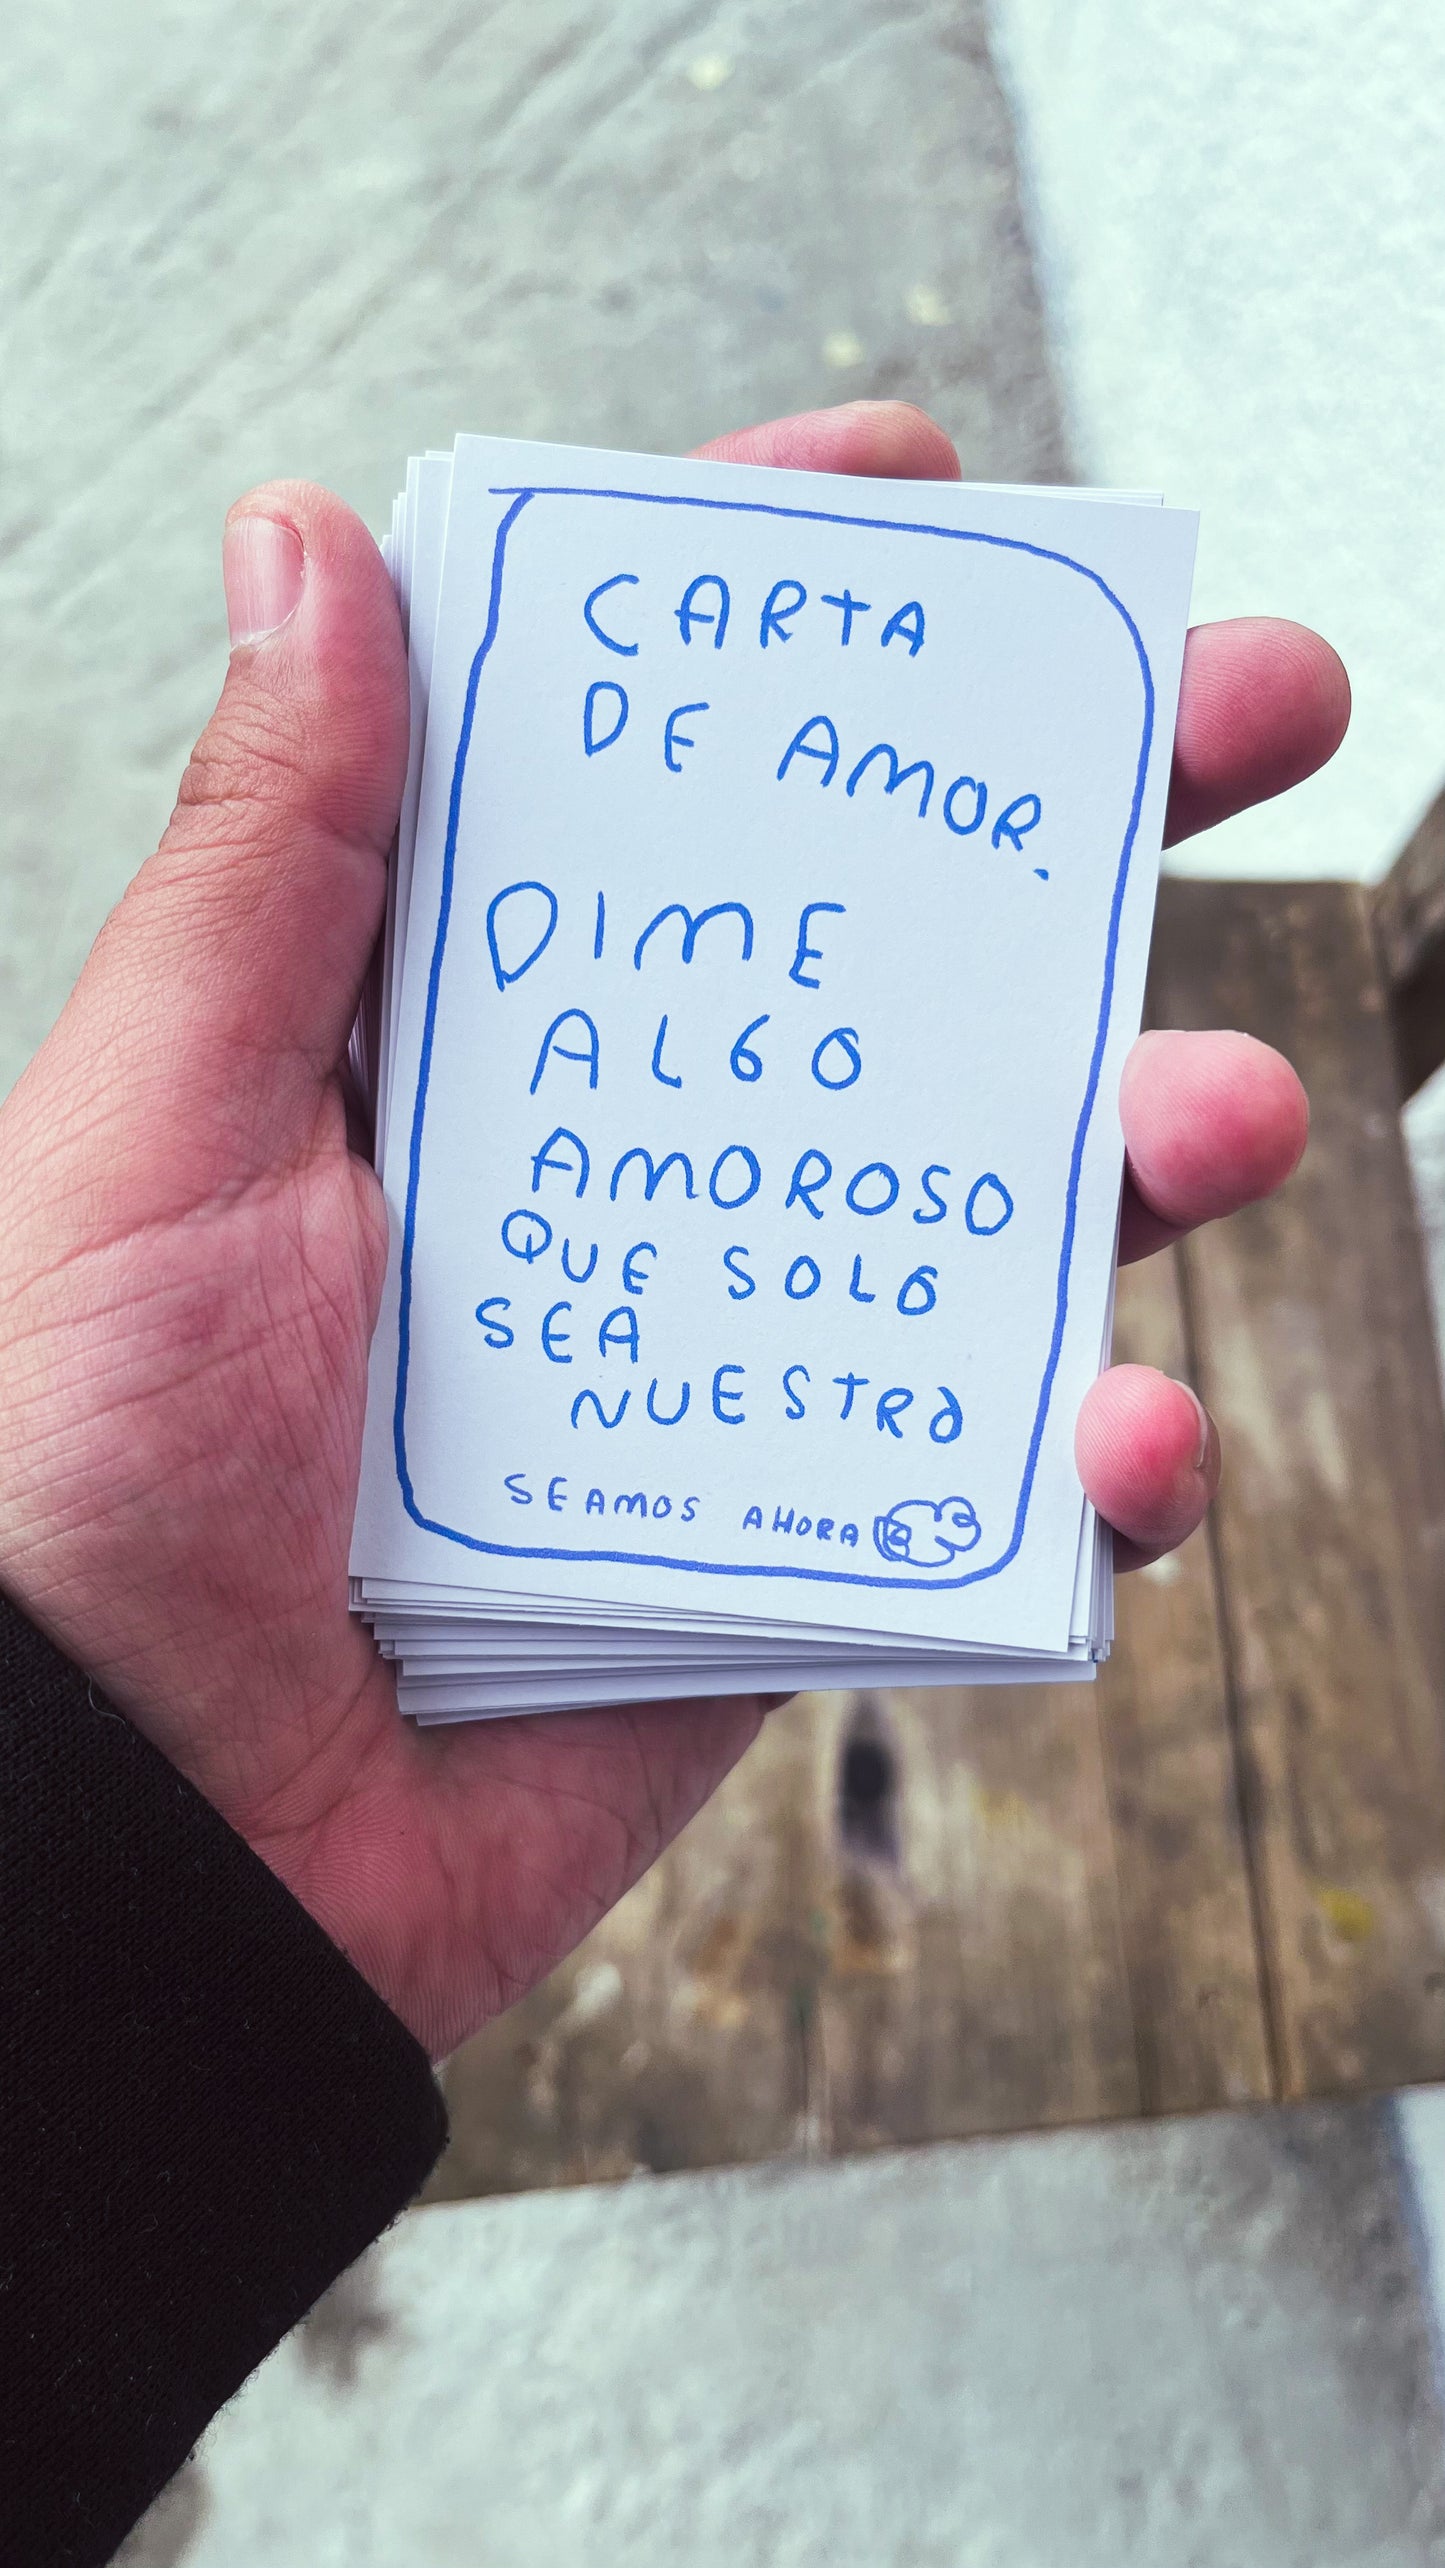 CARTA
DE AMOR.
DIME
ALGO
AMOROSO
QUE SOLO
SEA
NUESTRO
SEAMOS AHORA